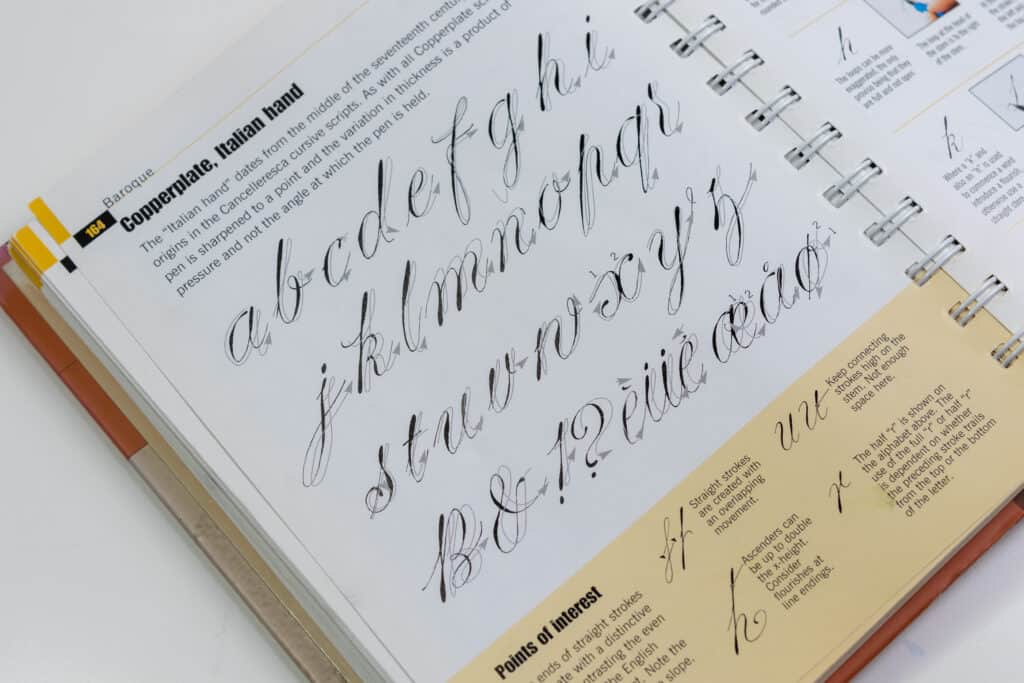 164
Baroque
Copperplate, Italian hand
The "Italian hand" dates from the middle of the seventeenth
origins in the Cancelleresca cursive scripts. As with all Copperplate
pen is sharpened to a point and the variation in thickness is a product of
pressure and not the angle at which the pen is held.
a b c d e f g h i
j k l m n o p q r
s t u v w x y z
ß & 1 ? ! æ å ø
Points of interest
ends of straight strokes
with a distinctive
the even
the English
Note the
slope.
Straight strokes
are created with
an overlapping
movement.
Ascenders can
be up to double
the x-height.
Consider
flourishes at
line endings.
u u
Keep connecting
strokes high on the
stem. Not enough
space here.
r
The half "r" is shown on
the alphabet above. The
use of the full "r" or half "r"
is dependent on whether
the preceding stroke trails
from the top or the bottom
of the letter.
h
The loops can be more
exaggerated, the only
proviso being that they
are full and not open.
The loop at the head of
the stem is to the right
of the stem.
k
Where a "k" and
also an "h" is used
to commence a word
introduce a flourish,
otherwise use a
straight